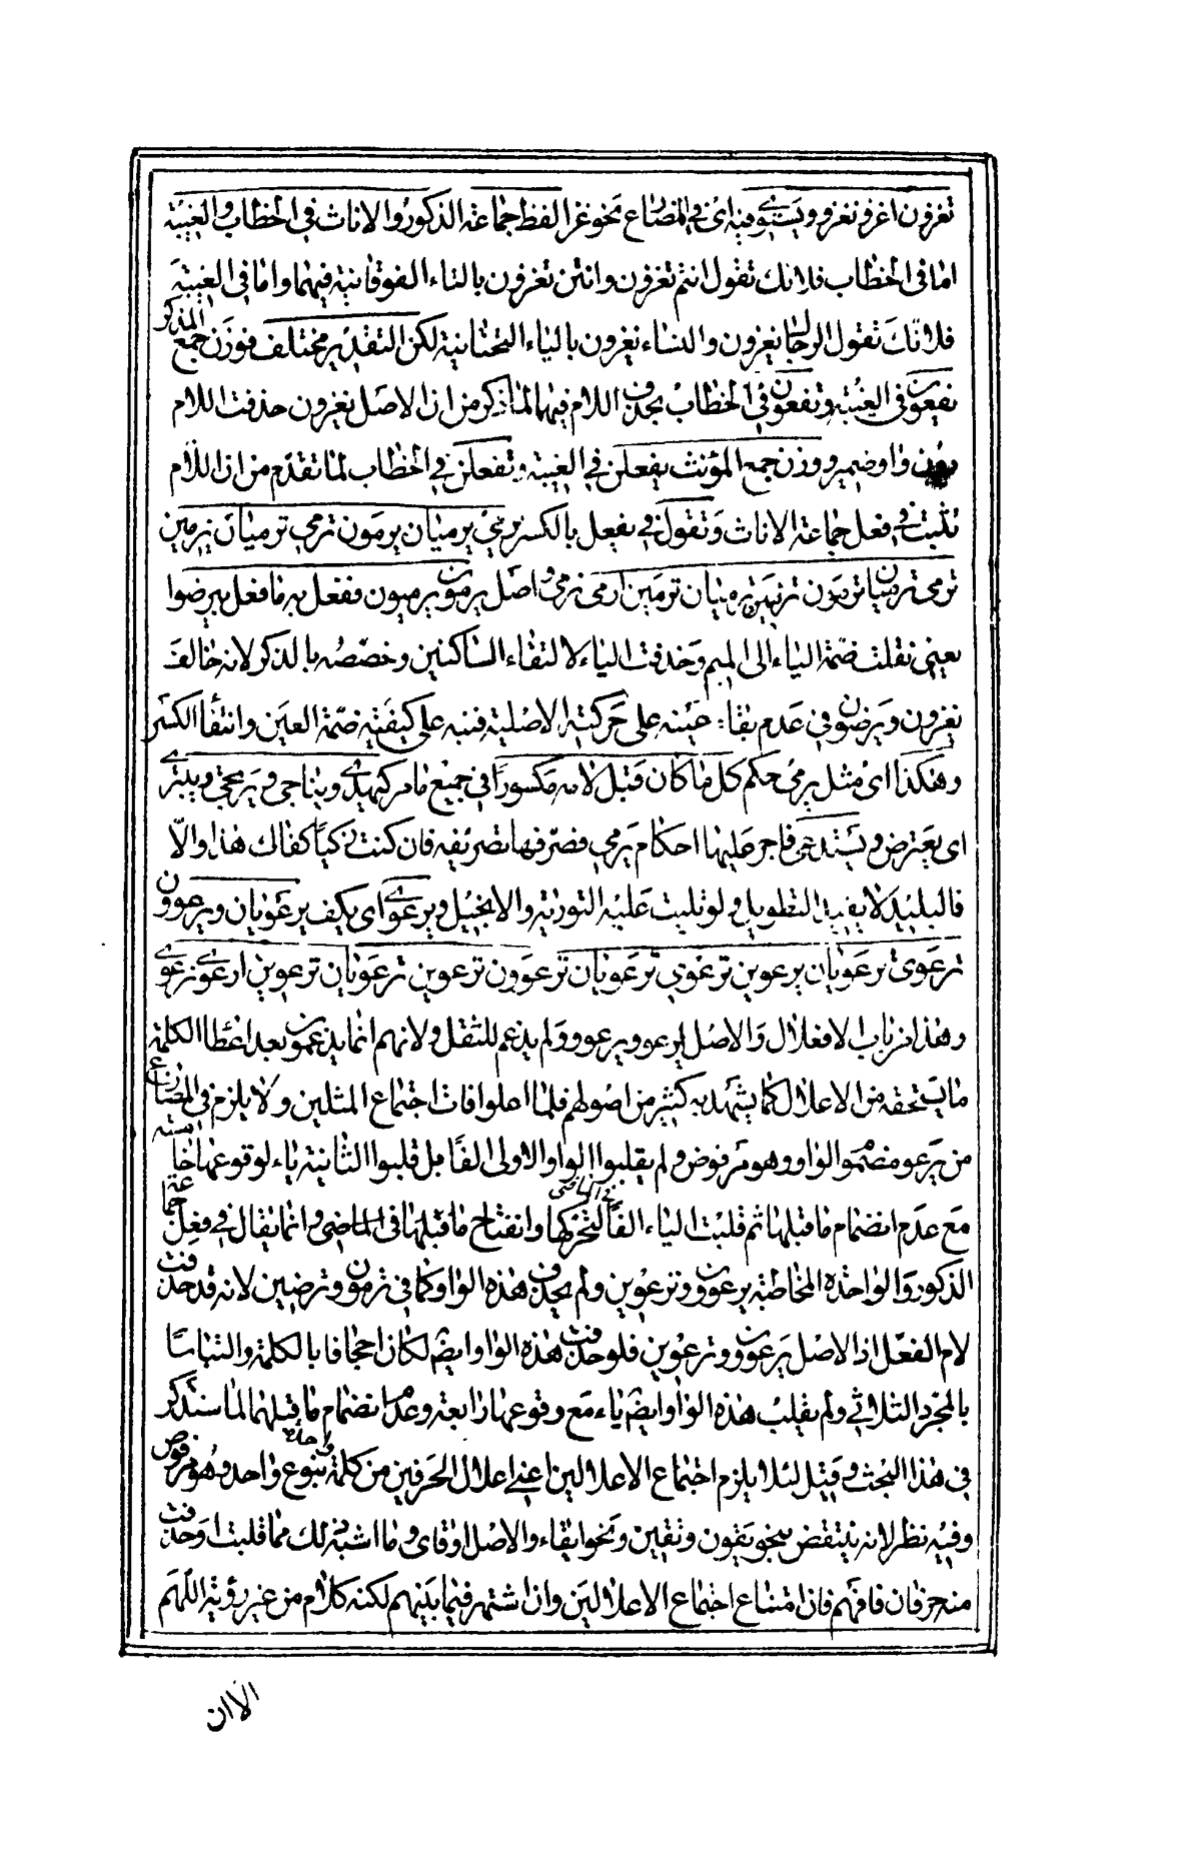 تغزون اغزو نغزو ويستوى فيه اى فى المضارع نحو غزا لفظ جماعة الذكور والاناث فى الخطاب والغيبة
اما فى الخطاب فلانك تقول انتم تغزون وانتن تغزون بالتاء الفوقانية فيهما واما فى الغيبة
فلانك تقول الرجال يغزون والنساء يغزون بالياء التحتانية لكن التقدير مختلف فوزن جمع المذكر
يفعون فى الغيبة وتفعون فى الخطاب بحذف اللام فيهما لما ذكر من ان الاصل يغزون حذفت اللام
دون واو ضمير ووزن جمع المؤنث يفعلن فى الغيبة وتفعلن فى الخطاب لما تقدم من ان اللام
تثبت فى فعل جماعة الاناث وتقول فى يفعل بالكسر يرمى يرميان يرمون ترمى ترميان يرمين
ترمى ترميان ترمون ترمين ترميان ترمين ارمى نرمى واصل يرمون يرميون ففعل به ما فعل بيرضوا
يعنى نقلت ضمة الياء الى الميم وحذفت الياء لالتقاء الساكنين وخصصه بالذكر لانه خالف
يغزون ويرضون فى عدم بقاء عينه على حركته الاصلية فنبه على كيفية ضمة العين وانتفاء الكسر
وهكذا اى مثل يرمى حكم كل ما كان قبل لامه مكسورا فى جميع ما مر كيهدى ويناجى ويرتجى وينبرى
اى يعترض ويستدعى فاجر عليها احكام يرمى فصرفها تصريفه فان كنت زكيا كفاك هذا والا
فالبليد لا يفيده التطويل ولو تليت عليه التورية والانجيل ويرعوى اى يكف يرعويان ويرعوون
ترعوى ترعويان يرعوين ترعوى ترعويان ترعوون ترعوين ترعويان ترعوين ارعوى نرعوى
وهذا من باب الافعلال والاصل ارعوو يرعوو ولم يدغم للثقل ولانهم انما يدغمون بعد اعطاء الكلمة
ما يستحقه من الاعلال كما يشهد به كثير من اصولهم فلما اعلوا فات اجتماع المثلين ولا يلزم فى المضارع
من يرعو مضموم الواو وهو مرفوض ولم يقلبوا الواو الاولى الفا بل قلبوا الثانية ياء لوقوعها خامسة
مع عدم انضمام ما قبلها ثم قلبت الياء الفا لتحركها وانفتاح ما قبلها فى الماضى وانما يقال فى فعل جماعة
الذكور والواحدة المخاطبة يرعوون وترعوين ولم يحذف هذه الواو كما فى ترمون وترضين لانه قد حذفت
لام الفعل اذ الاصل يرعوون وترعوين فلو حذفت هذه الواو ايضا لكان اجحافا بالكلمة والتباسا
بالمجرد الثلاثى ولم يقلب هذه الواو ايضا ياء مع وقوعها رابعة وعدم انضمام ما قبلها لما سنذكر
فى هذا البحث وقيل لئلا يلزم اجتماع الاعلالين اعنى اعلال الحرفين من كلمة واحدة بنوع واحد وهو مرفوض
وفيه نظر لانه ينتقض بنحو يقون وتقين ونحو ايقاء والاصل اوقاى وما اشبه ذلك مما قلبت او حذفت
منه حرفان فافهم فان امتناع اجتماع الاعلالين وان اشتهر فيما بينهم لكنه كلام من غير روية اللهم
الا ان